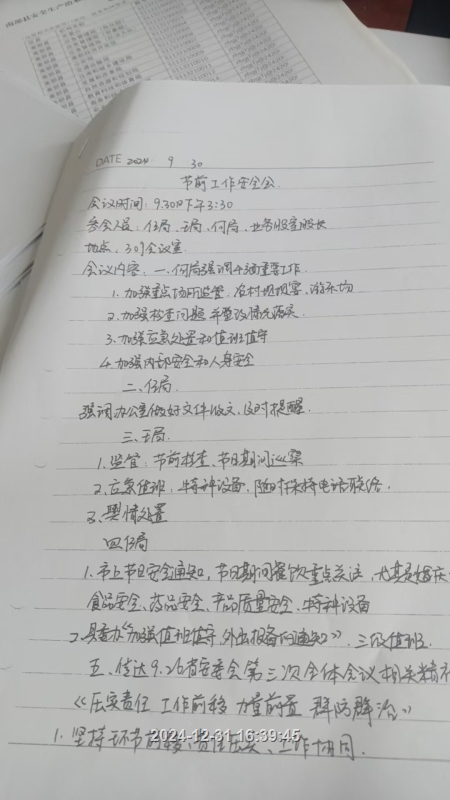 DATE 2024 9 30
节前工作安全会
会议时间: 9.30日下午3:30
参会人员: 任局、王局、何局、业务股室股长
地点: 3楼会议室
会议内容: 一、何局强调4项重要工作
1. 加强重点场所监管.
2. 加强检查问题并整改情况落实.
3. 加强应急处置和值班值守
4. 加强内部安全和人身安全
二、任局.
强调办公室做好文件收文,及时提醒.
三、王局.
1. 监管: 节前检查、节日期间巡察
2. 应急值班: 特种设备. 随时保持电话联络.
3. 舆情处置
四 任局
1. 市上节日安全通知, 节日期间餐饮重点关注, 尤其是婚庆
食品安全、药品安全、产品质量安全、特种设备
2. 县委办“加强值班值守、外出报备的通知”. 三级值班.
五、传达9.26省安委会第三次全体会议相关精神
《压实责任 工作前移 力量前置 群防群治》
1. 坚持环节前移、责任压实、工作协同.
2024-12-31 16:39:45